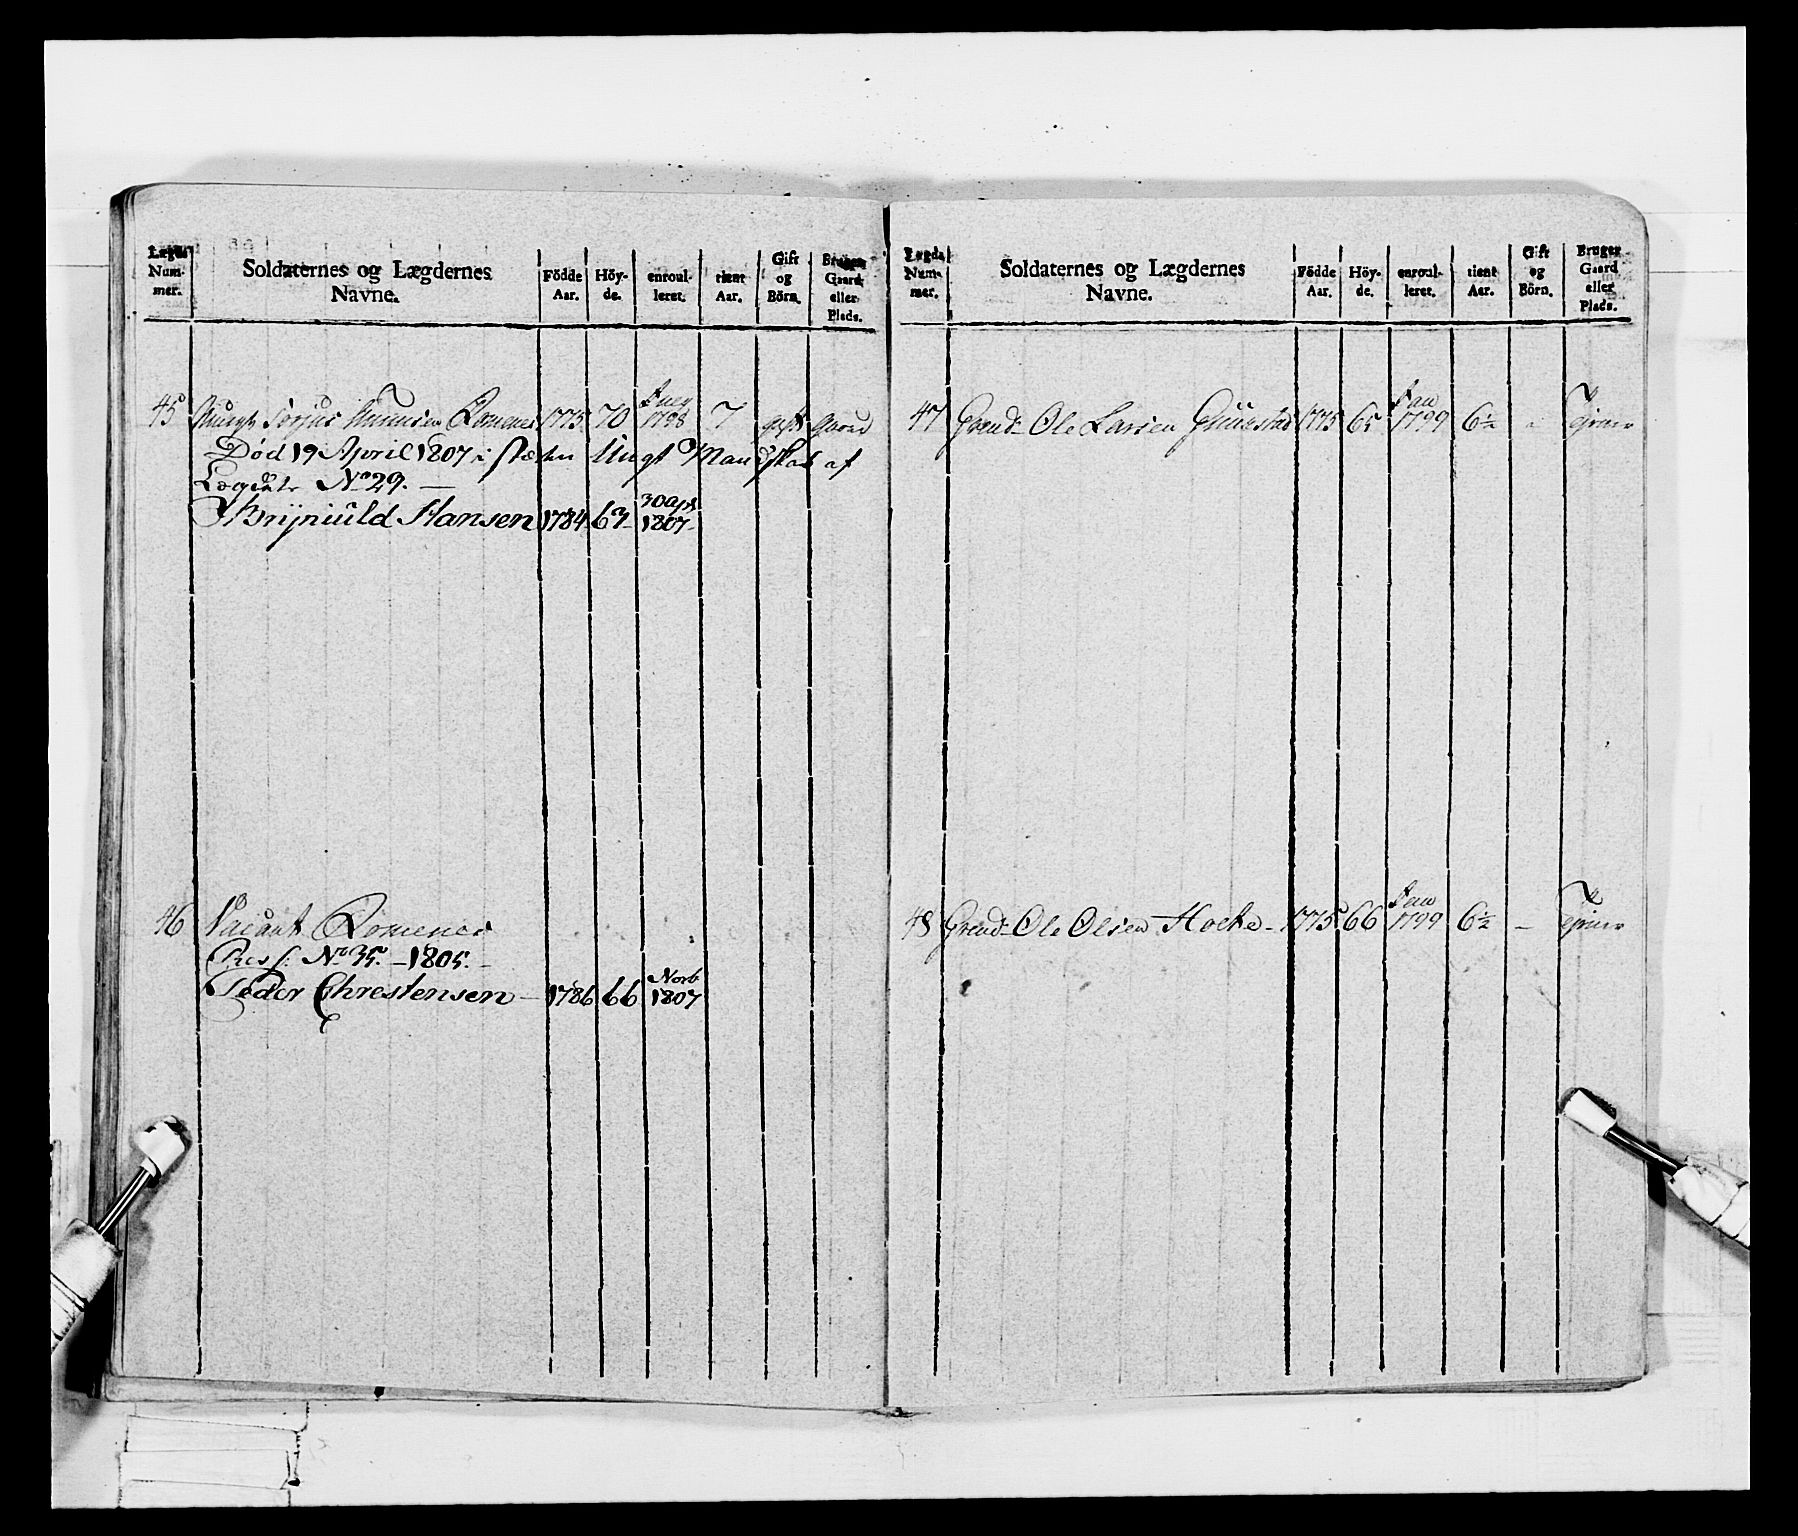 Lægds Num- mer.
Soldaternes og Lægdernes Navne.
Födde Aar.
Höy- de.
enroul- leret.
tient Aar.
Gift og Börn.
Bruger Gaard eller Plads.
45 Torjus Romenes 1775 70 1798 7 gift gaard
Død 19 April 1807 i stæden Ungt Mandskab af
Lægdets No 29. —
Brijniuld Hansen 1784 67 30 Apr 1807
46 Vacant Romenes
Ress: No 35. — 1805. —
Peder Chrestensen — 1786 66 Novb 1807
Lægds Num- mer.
Soldaternes og Lægdernes Navne.
Födde Aar.
Höy- de.
enroul- leret.
tient Aar.
Gift og Börn.
Bruger Gaard eller Plads.
47 Grend. Ole Larsen 1775 65 Jan 1799 6½ - Tjener
48 Grend. Ole Olsen Holte - 1775 66 Jan 1799 6½ - Tjener